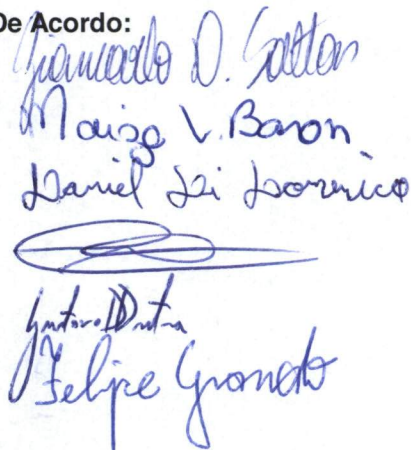 De Acordo:
Giancarlo D. Salton
Maiza V. Baron
Daniel Di Domenico
Gustavo D Dutra
Felipe Grando